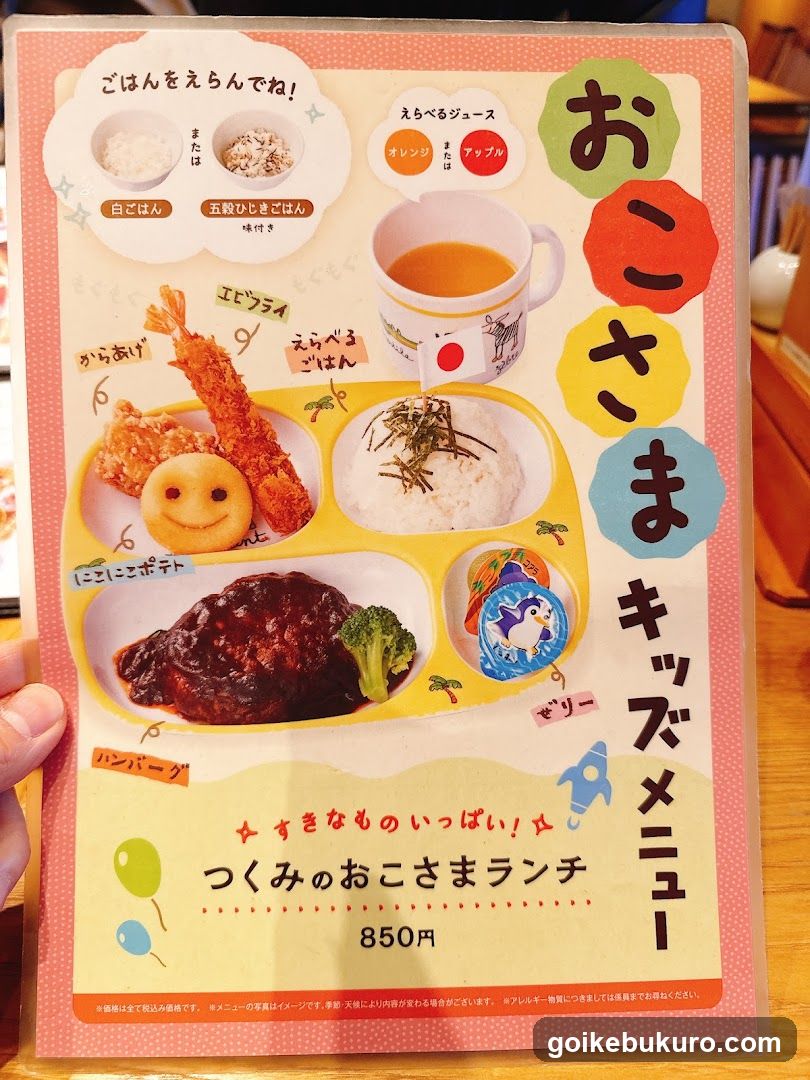 ごはんをえらんでね!
または
白ごはん
五穀ひじきごはん
味付き
えらべるジュース
オレンジ
または
アップル
おこさま
キッズメニュー
エビフライ
からあげ
えらべる
ごはん
にこにこポテト
コアラ
ハンバーグ
ゼリー
すきなものいっぱい!
つくみのおこさまランチ
850円
※価格は全て税込み価格です。 ※メニューの写真はイメージです。季節・天候により内容が変わる場合がございます。 ※アレルギー物質につきましては係員までお尋ねください。
goikebukuro.com